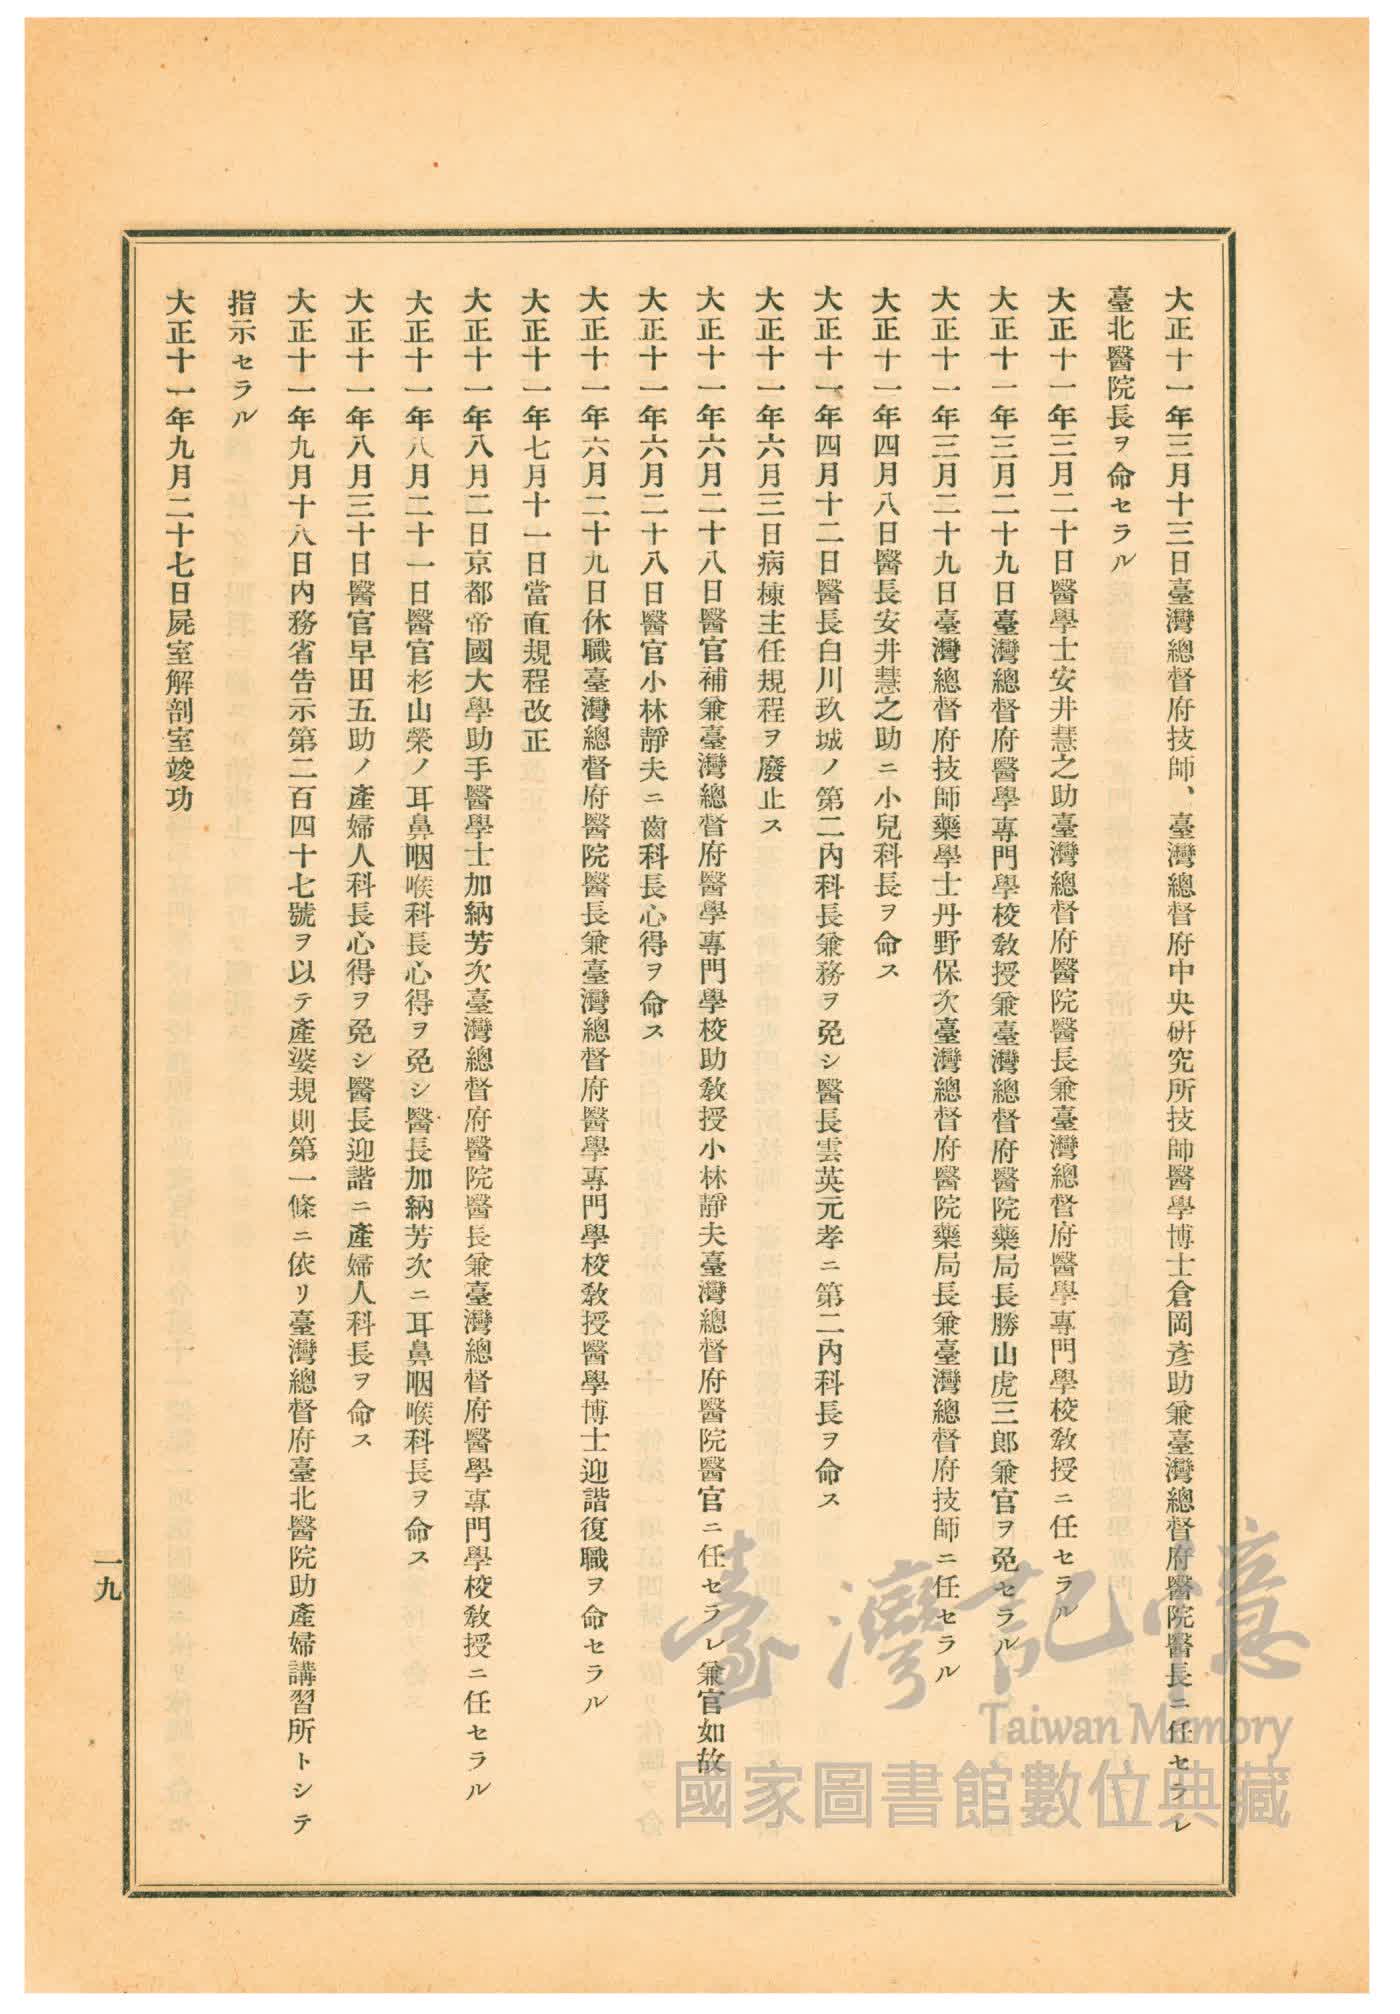 大正十一年三月十三日臺灣總督府技師、臺灣總督府中央硏究所技師醫學博士倉岡彥助兼臺灣總督府醫院醫長ニ任セラレ
臺北醫院長ヲ命セラル
大正十一年三月二十日醫學士安井慧之助臺灣總督府醫院醫長兼臺灣總督府醫學專門學校敎授ニ任セラル
大正十一年三月二十九日臺灣總督府醫學專門學校敎授兼臺灣總督府醫院藥局長勝山虎三郎兼官ヲ免セラル
大正十一年三月二十九日臺灣總督府技師藥學士丹野保次臺灣總督府醫院藥局長兼臺灣總督府技師ニ任セラル
大正十一年四月八日醫長安井慧之助ニ小兒科長ヲ命ス
大正十一年四月十二日醫長白川玖城ノ第二內科長兼務ヲ免シ醫長雲英元孝ニ第二內科長ヲ命ス
大正十一年六月三日病棟主任規程ヲ廢止ス
大正十一年六月二十八日醫官補兼臺灣總督府醫學專門學校助敎授小林靜夫臺灣總督府醫院醫官ニ任セラレ兼官如故
大正十一年六月二十八日醫官小林靜夫ニ齒科長心得ヲ命ス
大正十一年六月二十九日休職臺灣總督府醫院醫長兼臺灣總督府醫學專門學校敎授醫學博士迎諧復職ヲ命セラル
大正十一年七月十一日當直規程改正
大正十一年八月二日京都帝國大學助手醫學士加納芳次臺灣總督府醫院醫長兼臺灣總督府醫學專門學校敎授ニ任セラル
大正十一年八月二十一日醫官杉山榮ノ耳鼻咽喉科長心得ヲ免シ醫長加納芳次ニ耳鼻咽喉科長ヲ命ス
大正十一年八月三十日醫官早田五助ノ產婦人科長心得ヲ免シ醫長迎諧ニ產婦人科長ヲ命ス
大正十一年九月十八日內務省告示第二百四十七號ヲ以テ產婆規則第一條ニ依リ臺灣總督府臺北醫院助產婦講習所トシテ
指示セラル
大正十一年九月二十七日屍室解剖室竣功
一九
臺灣記憶
Taiwan Memory
國家圖書館數位典藏